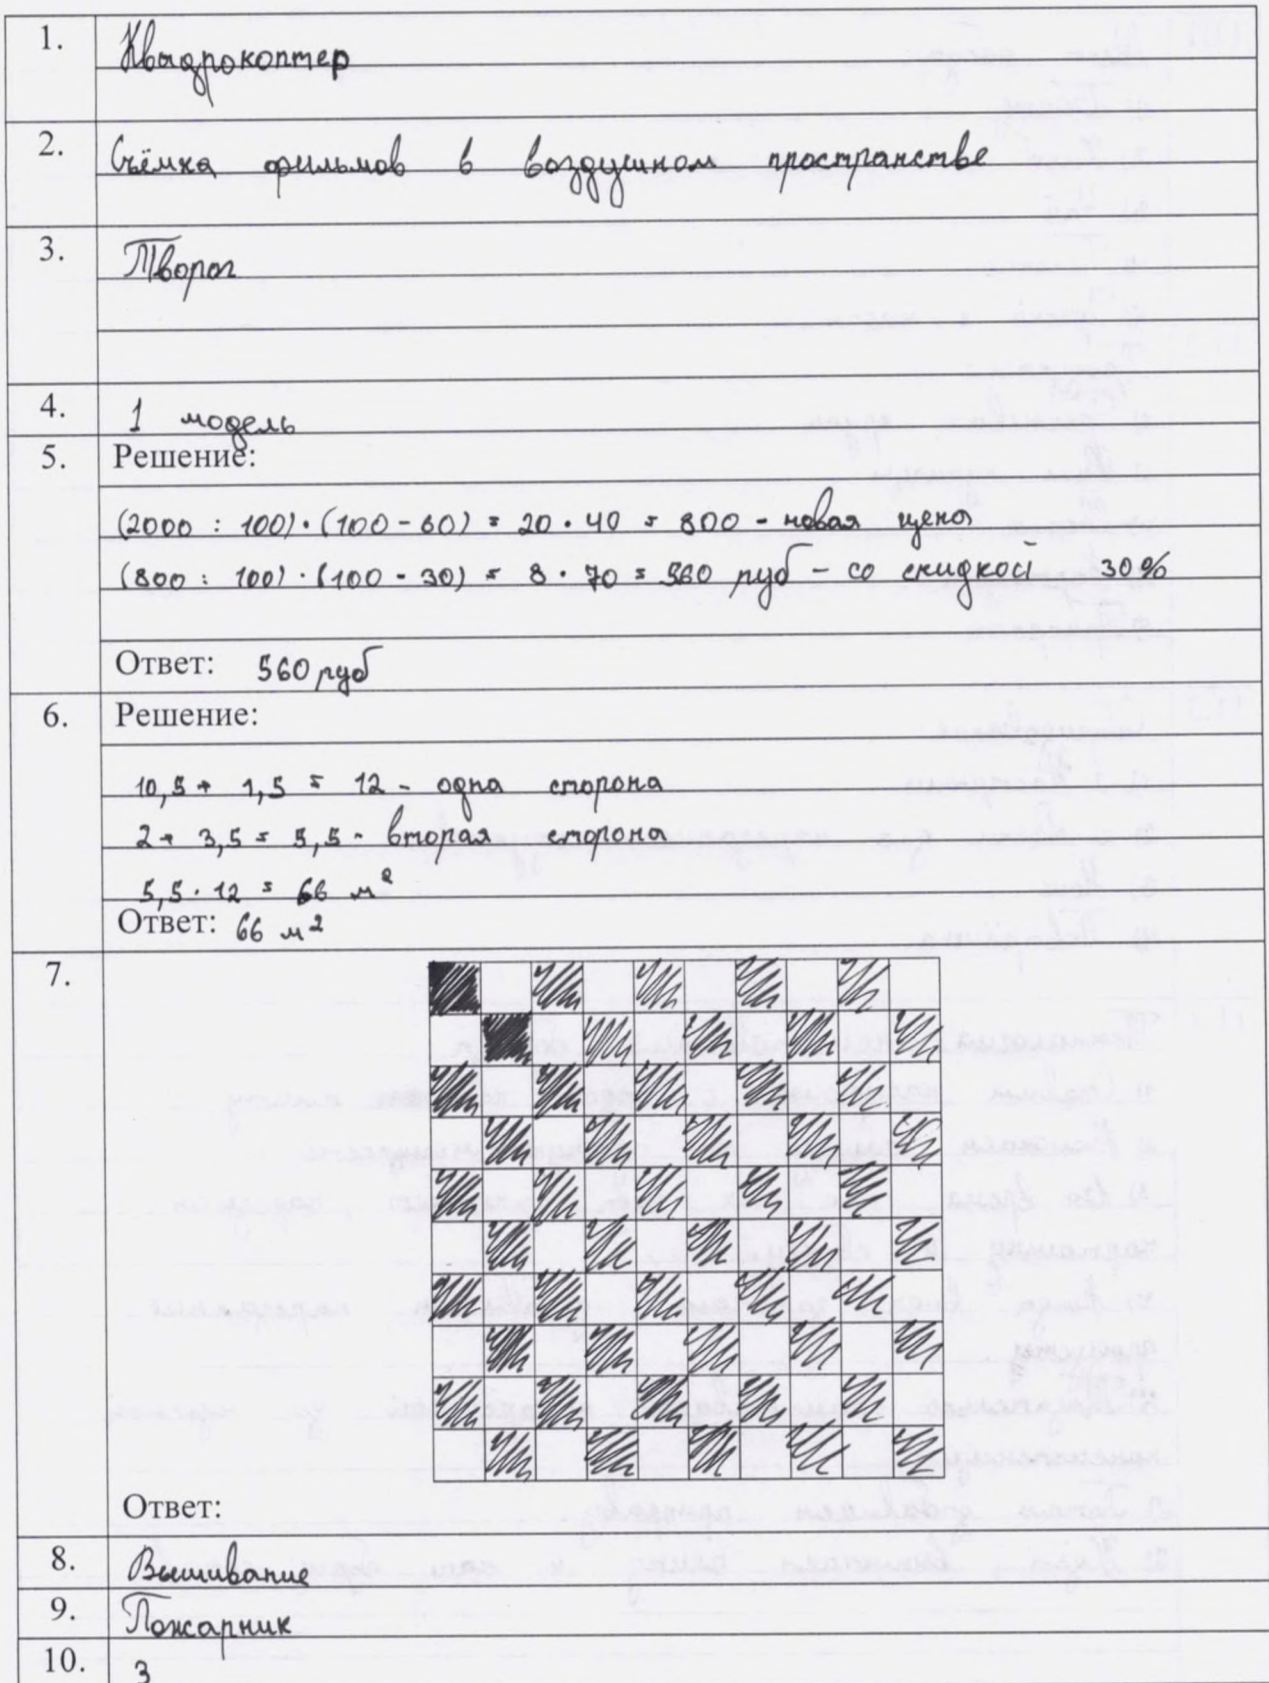 1. Квадрокоптер
2. Съёмка фильмов в воздушном пространстве
3. Творог
4. 1 модель
5. Решение:
(2000 : 100) · (100 - 60) = 20 · 40 = 800 - новая цена
(800 : 100) · (100 - 30) = 8 · 70 = 560 руб - со скидкой 30%
Ответ: 560 руб
6. Решение:
10,5 + 1,5 = 12 - одна сторона
2 + 3,5 = 5,5 - вторая сторона
5,5 · 12 = 66 м²
Ответ: 66 м²
7.
Ответ:
8. Вышивание
9. Пожарник
10. 3